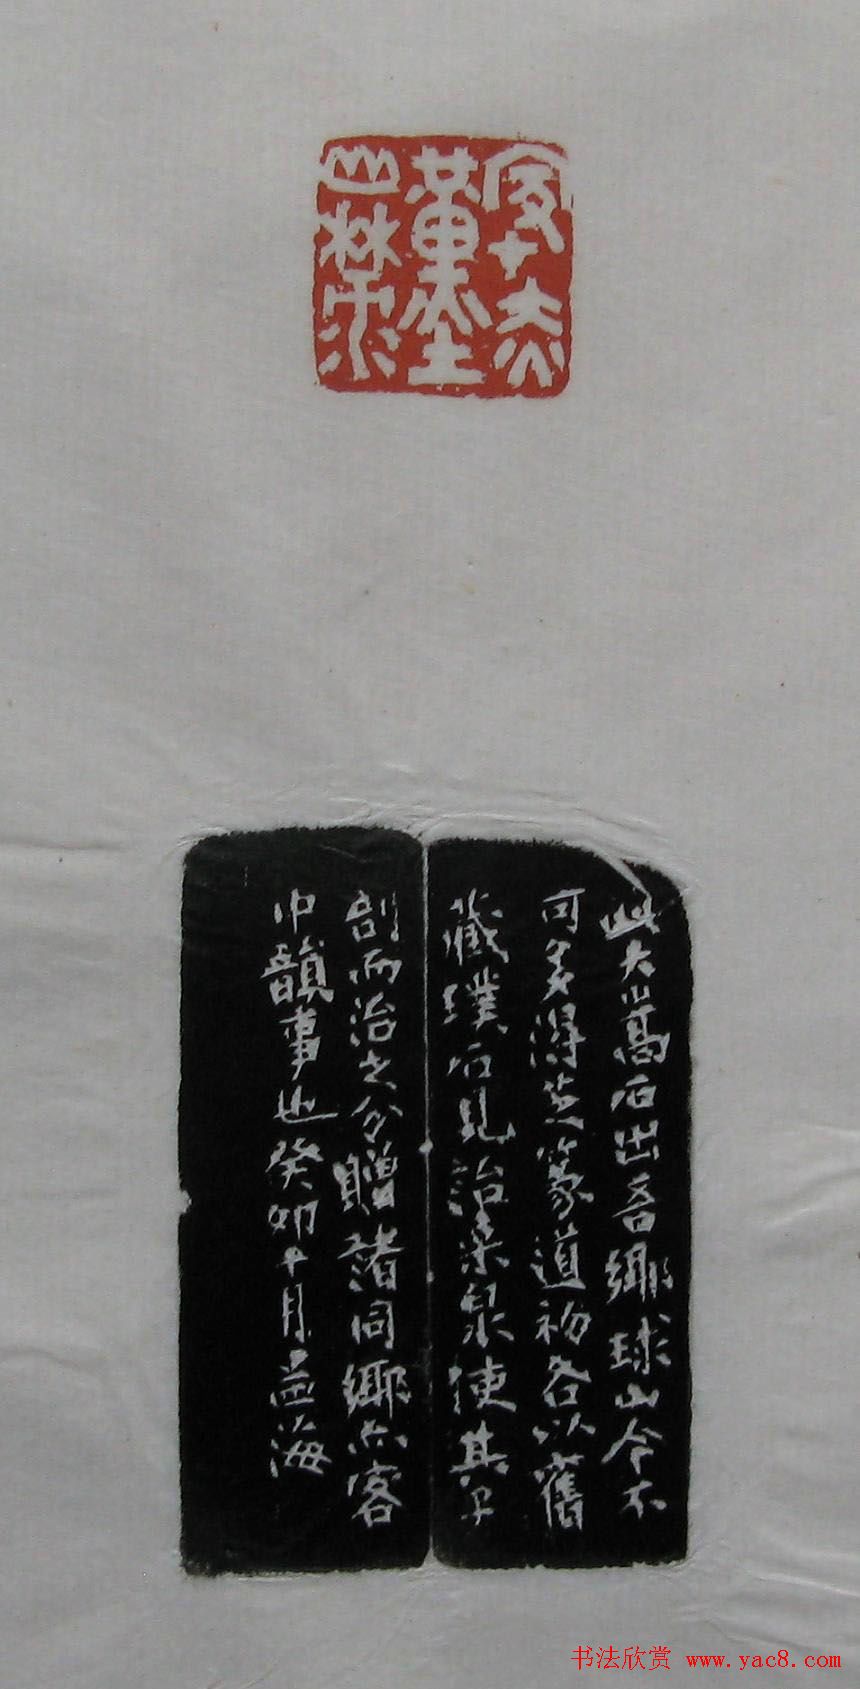 此大嵩石出吾鄉球山今不
可多得芝篆道各以舊
藏璞石見詒泉使其子
剖而治之今贈諸同鄉亦客
中韻事也癸卯十月海
书法欣赏 www.yac8.com